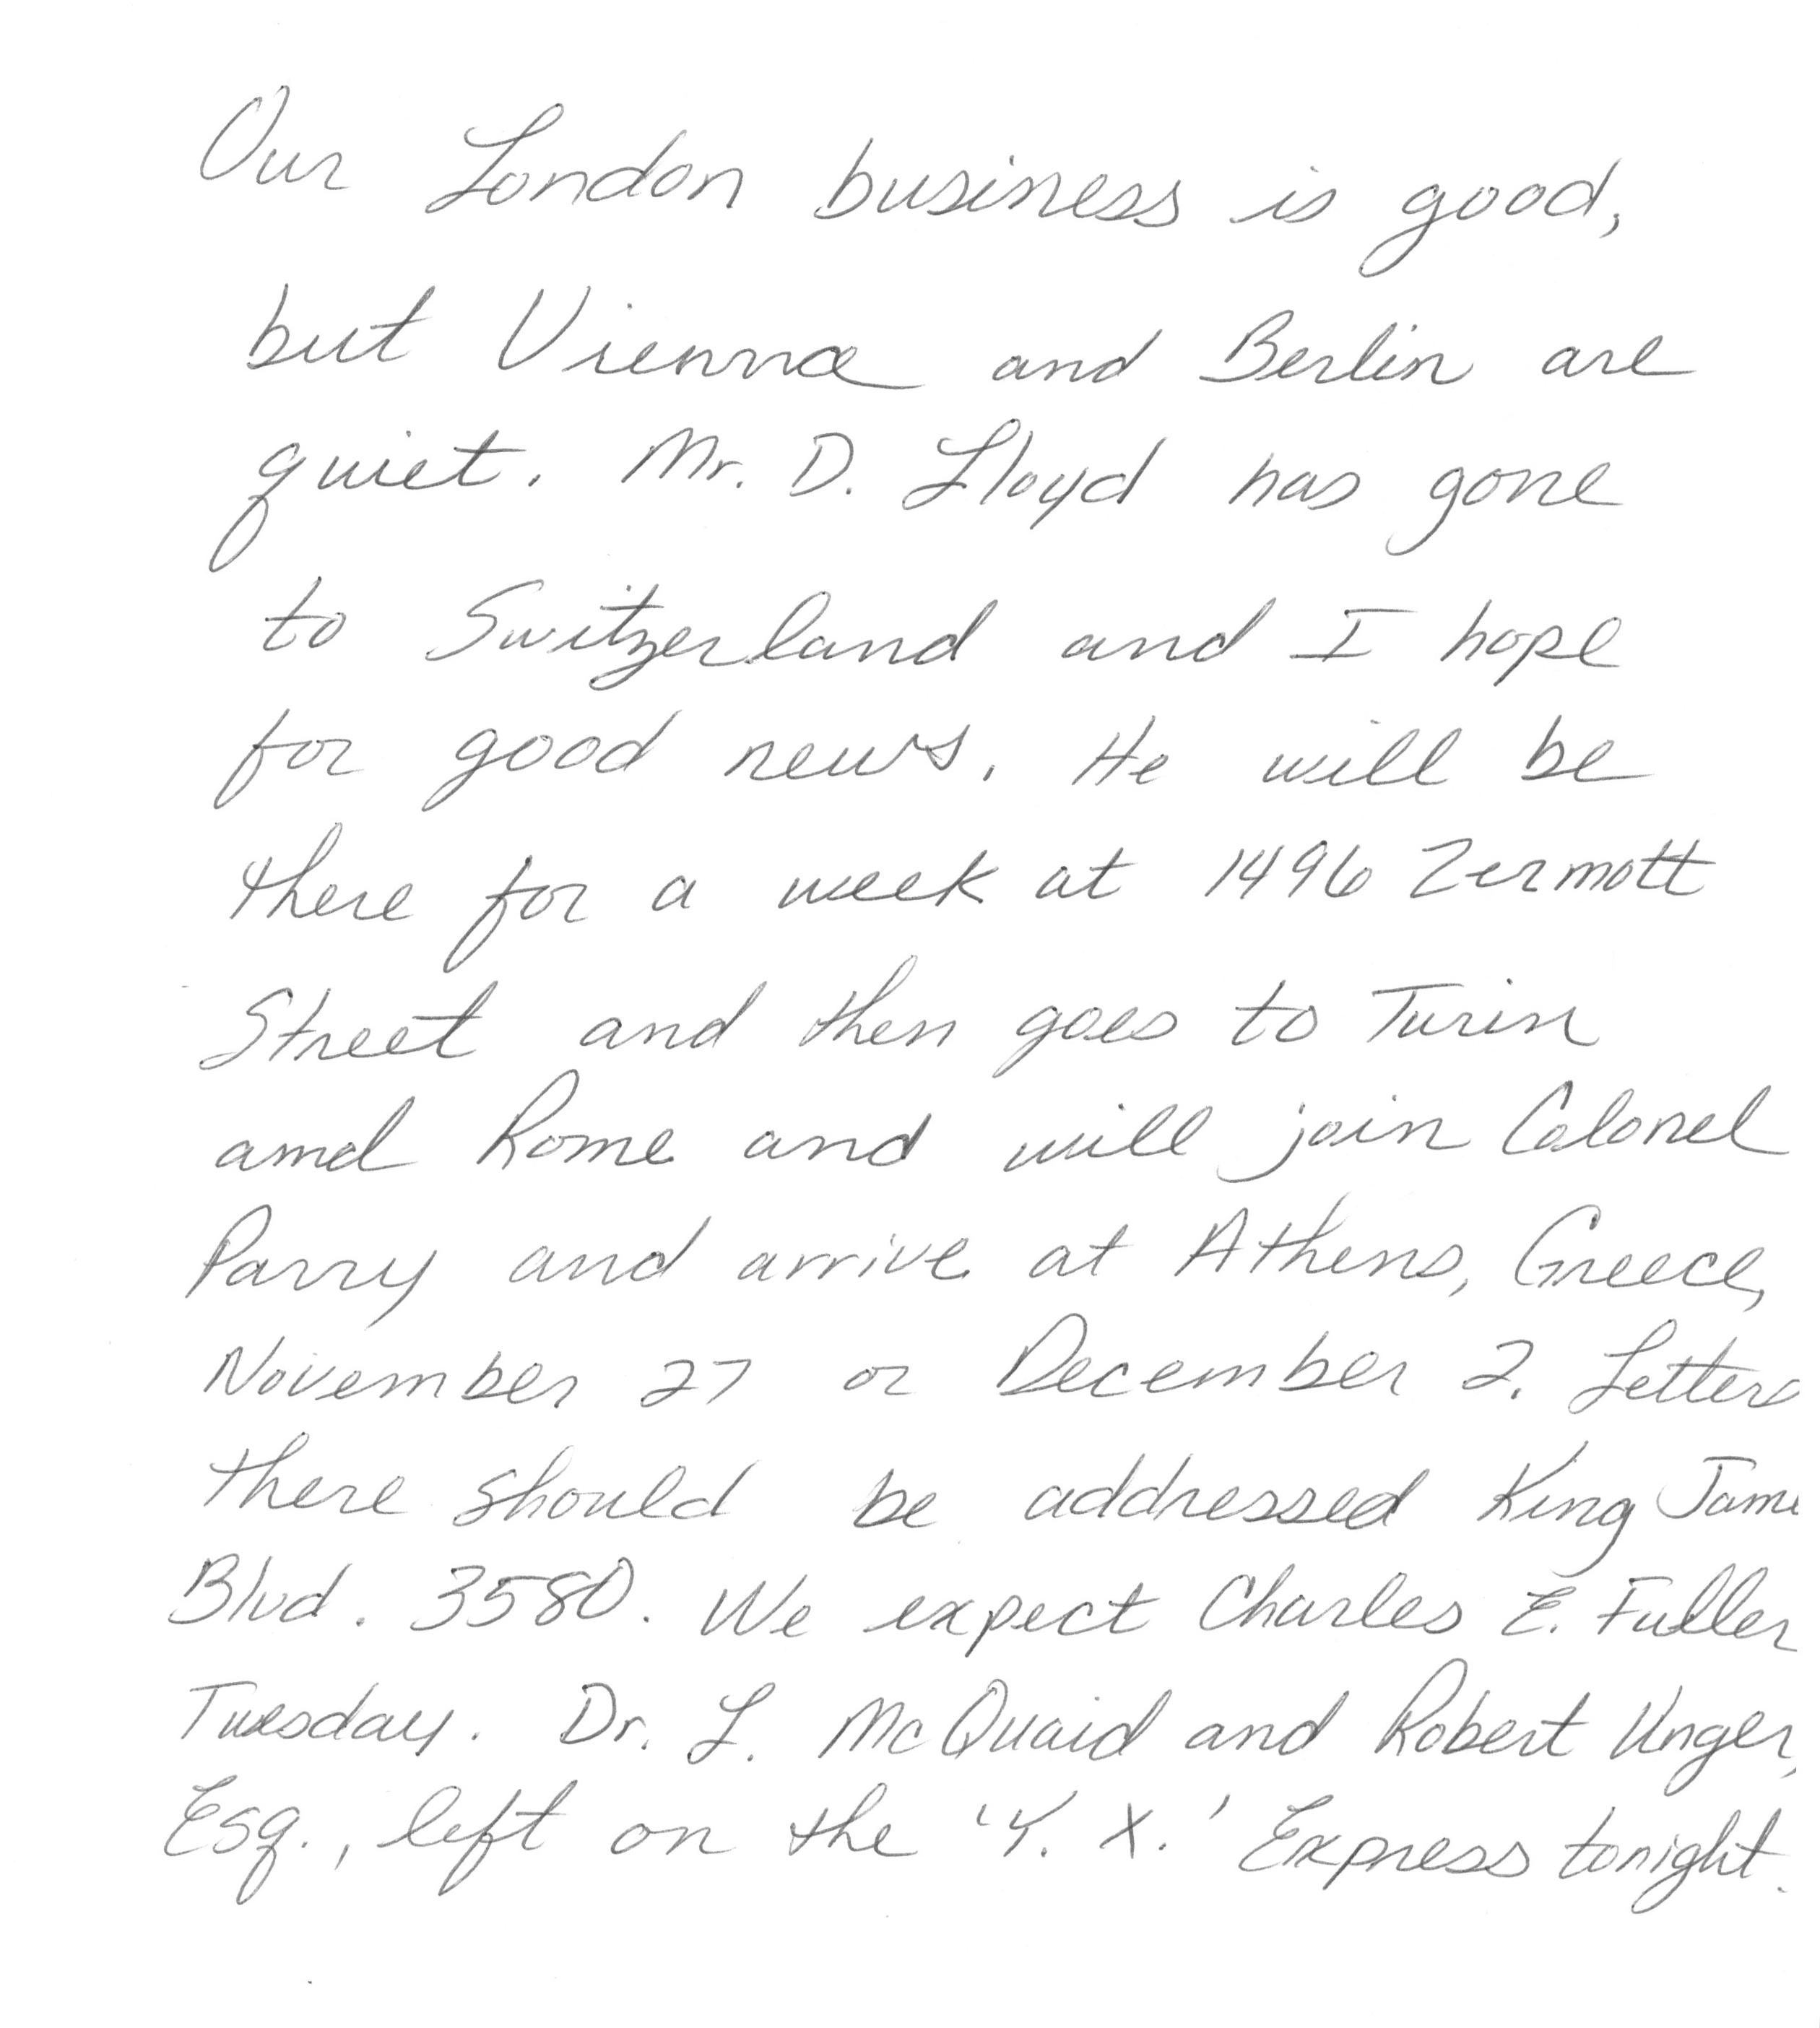 Our London business is good,
but Vienna and Berlin are
quiet. Mr. D. Lloyd has gone
to Switzerland and I hope
for good news. He will be
there for a week at 1496 Zermott
Street and then goes to Turin
amd Rome and will join Colonel
Parry and arrive at Athens, Greece,
November 27 or December 2. Letters
there should be addressed King Jame
Blvd. 3580. We expect Charles E. Fuller
Tuesday. Dr. L. McQuaid and Robert Unger,
Esq., left on the 'Y. X.' Express tonight.